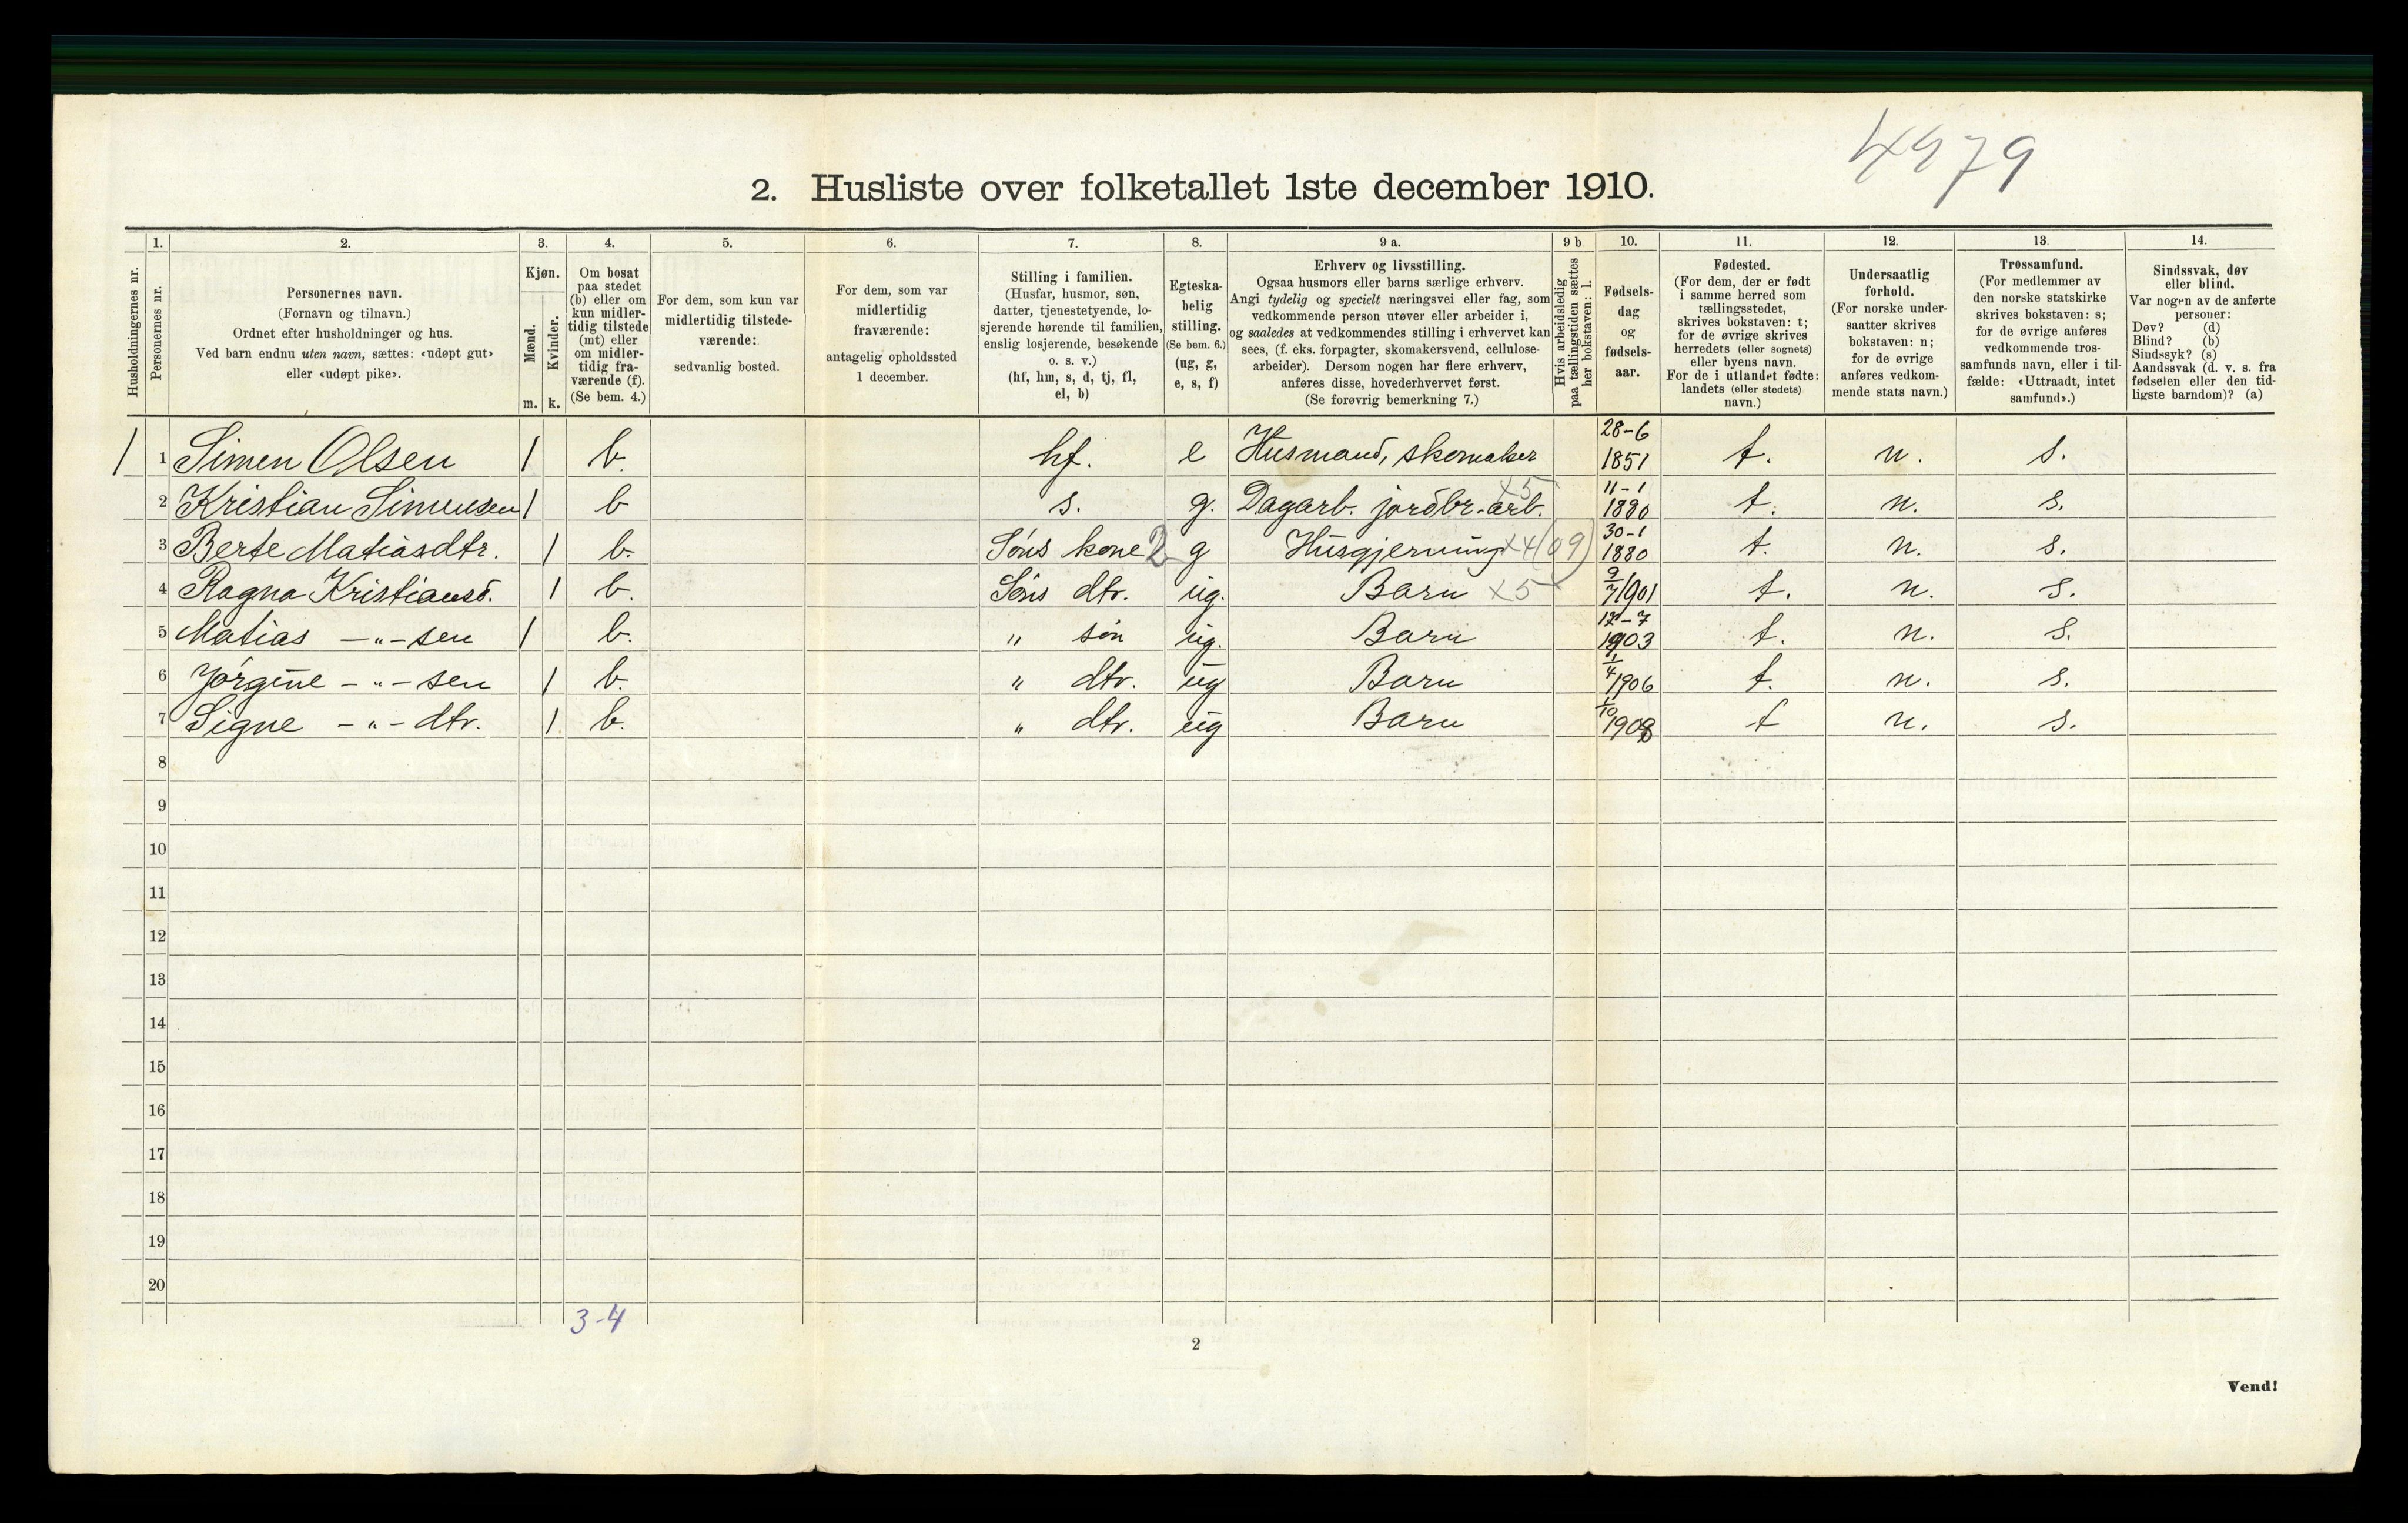 4979
2. Husliste over folketallet 1ste december 1910.
Husholdningernes nr.
1.
Personernes nr.
2.
Personernes navn.
(Fornavn og tilnavn.)
Ordnet efter husholdninger og hus.
Ved barn endnu uten navn, sættes: «udøpt gut»
eller «udøpt pike».
3.
Kjøn.
Mænd.
Kvinder.
m. k.
4.
Om bosat
paa stedet
(b) eller om
kun midler-
tidig tilstede
(mt) eller
om midler-
tidig fra-
værende (f).
(Se bem. 4.)
5.
For dem, som kun var
midlertidig tilstede-
værende:
sedvanlig bosted.
6.
For dem, som var
midlertidig
fraværende:
antagelig opholdssted
1 december.
7.
Stilling i familien.
(Husfar, husmor, søn,
datter, tjenestetyende, lo-
sjerende hørende til familien,
enslig losjerende, besøkende
o. s. v.)
(hf, hm, s, d, tj, fl,
el, b)
8.
Egteska-
belig
stilling.
(Se bem. 6.)
(ug, g,
e, s, f)
9 a.
Erhverv og livsstilling.
Ogsaa husmors eller barns særlige erhverv.
Angi tydelig og specielt næringsvei eller fag, som
vedkommende person utøver eller arbeider i,
og saaledes at vedkommendes stilling i erhvervet kan
sees, (f. eks. forpagter, skomakersvend, cellulose-
arbeider). Dersom nogen har flere erhverv,
anføres disse, hovederhvervet først.
(Se forøvrig bemerkning 7.)
9 b
Hvis arbeidsledig
paa tællingstiden sættes
her bokstaven: l.
10.
Fødsels-
dag
og
fødsels-
aar.
11.
Fødested.
(For dem, der er født
i samme herred som
tællingsstedet,
skrives bokstaven: t;
for de øvrige skrives
herredets (eller sognets)
eller byens navn.
For de i utlandet fødte:
landets (eller stedets)
navn.)
12.
Undersaatlig
forhold.
(For norske under-
saatter skrives
bokstaven: n;
for de øvrige
anføres vedkom-
mende stats navn.)
13.
Trossamfund.
(For medlemmer av
den norske statskirke
skrives bokstaven: s;
for de øvrige anføres
vedkommende tros-
samfunds navn, eller i til-
fælde: «Uttraadt, intet
samfund».)
14.
Sindssvak, døv
eller blind.
Var nogen av de anførte
personer:
Døv? (d)
Blind? (b)
Sindssyk? (s)
Aandssvak (d. v. s. fra
fødselen eller den tid-
ligste barndom)? (a)
1 1 Simen Olsen 1 b. hf. e Husmand, skomaker 28-6 1851 t. n. s.
2 Kristian Simensen 1 b s. g. Dagarb. jordbr.arb. x5 11-1 1880 t. n. s.
3 Berte Matiasdtr. 1 b. Søns kone 2 g Husgjerning x4(09) 30-1 1880 t. n. s.
4 Ragna Kristiansd. 1 b. Søns dtr. ug. Barn x5 9/7 1901 t. n. s.
5 Matias -"-sen 1 b. " søn ug. Barn 12-7 1903 t. n. s.
6 Jørgine -"-sen 1 b. " dtr. ug Barn 1/4 1906 t. n. s.
7 Signe -"-dtr. 1 b. " dtr. ug Barn 1/10 1908 t n. s.
8
9
10
11
12
13
14
15
16
17
18
19
20
3-4
2
Vend!